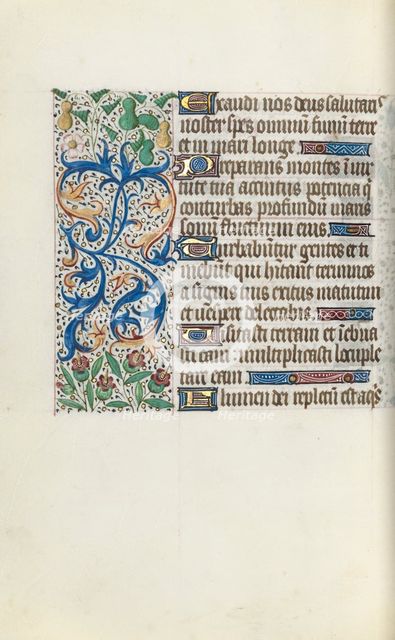 Exaudi nos deus salutaris
noster spes omniũ finiũ terre
et in mari longe
Preparans montes ĩ uir
tute tua accintus potencia q
conturbas profundũ maris
sonũ fluctuum eius
Turbabũtur gentes et ti
mebũt qui hĩtant terminos
a signis tuis exitus matutini
et uespere delectabis
Uisitasti terram et ĩebria
sti eam multiplicasti locuple
tare eam
Flumen dei repletũ est aq̃s
Heritage Heritage